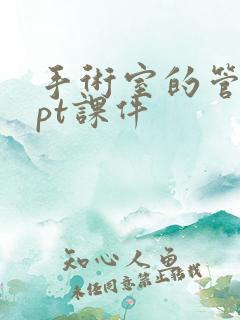 手術室的管
pt課件
知心人魚
未经同意禁止转载